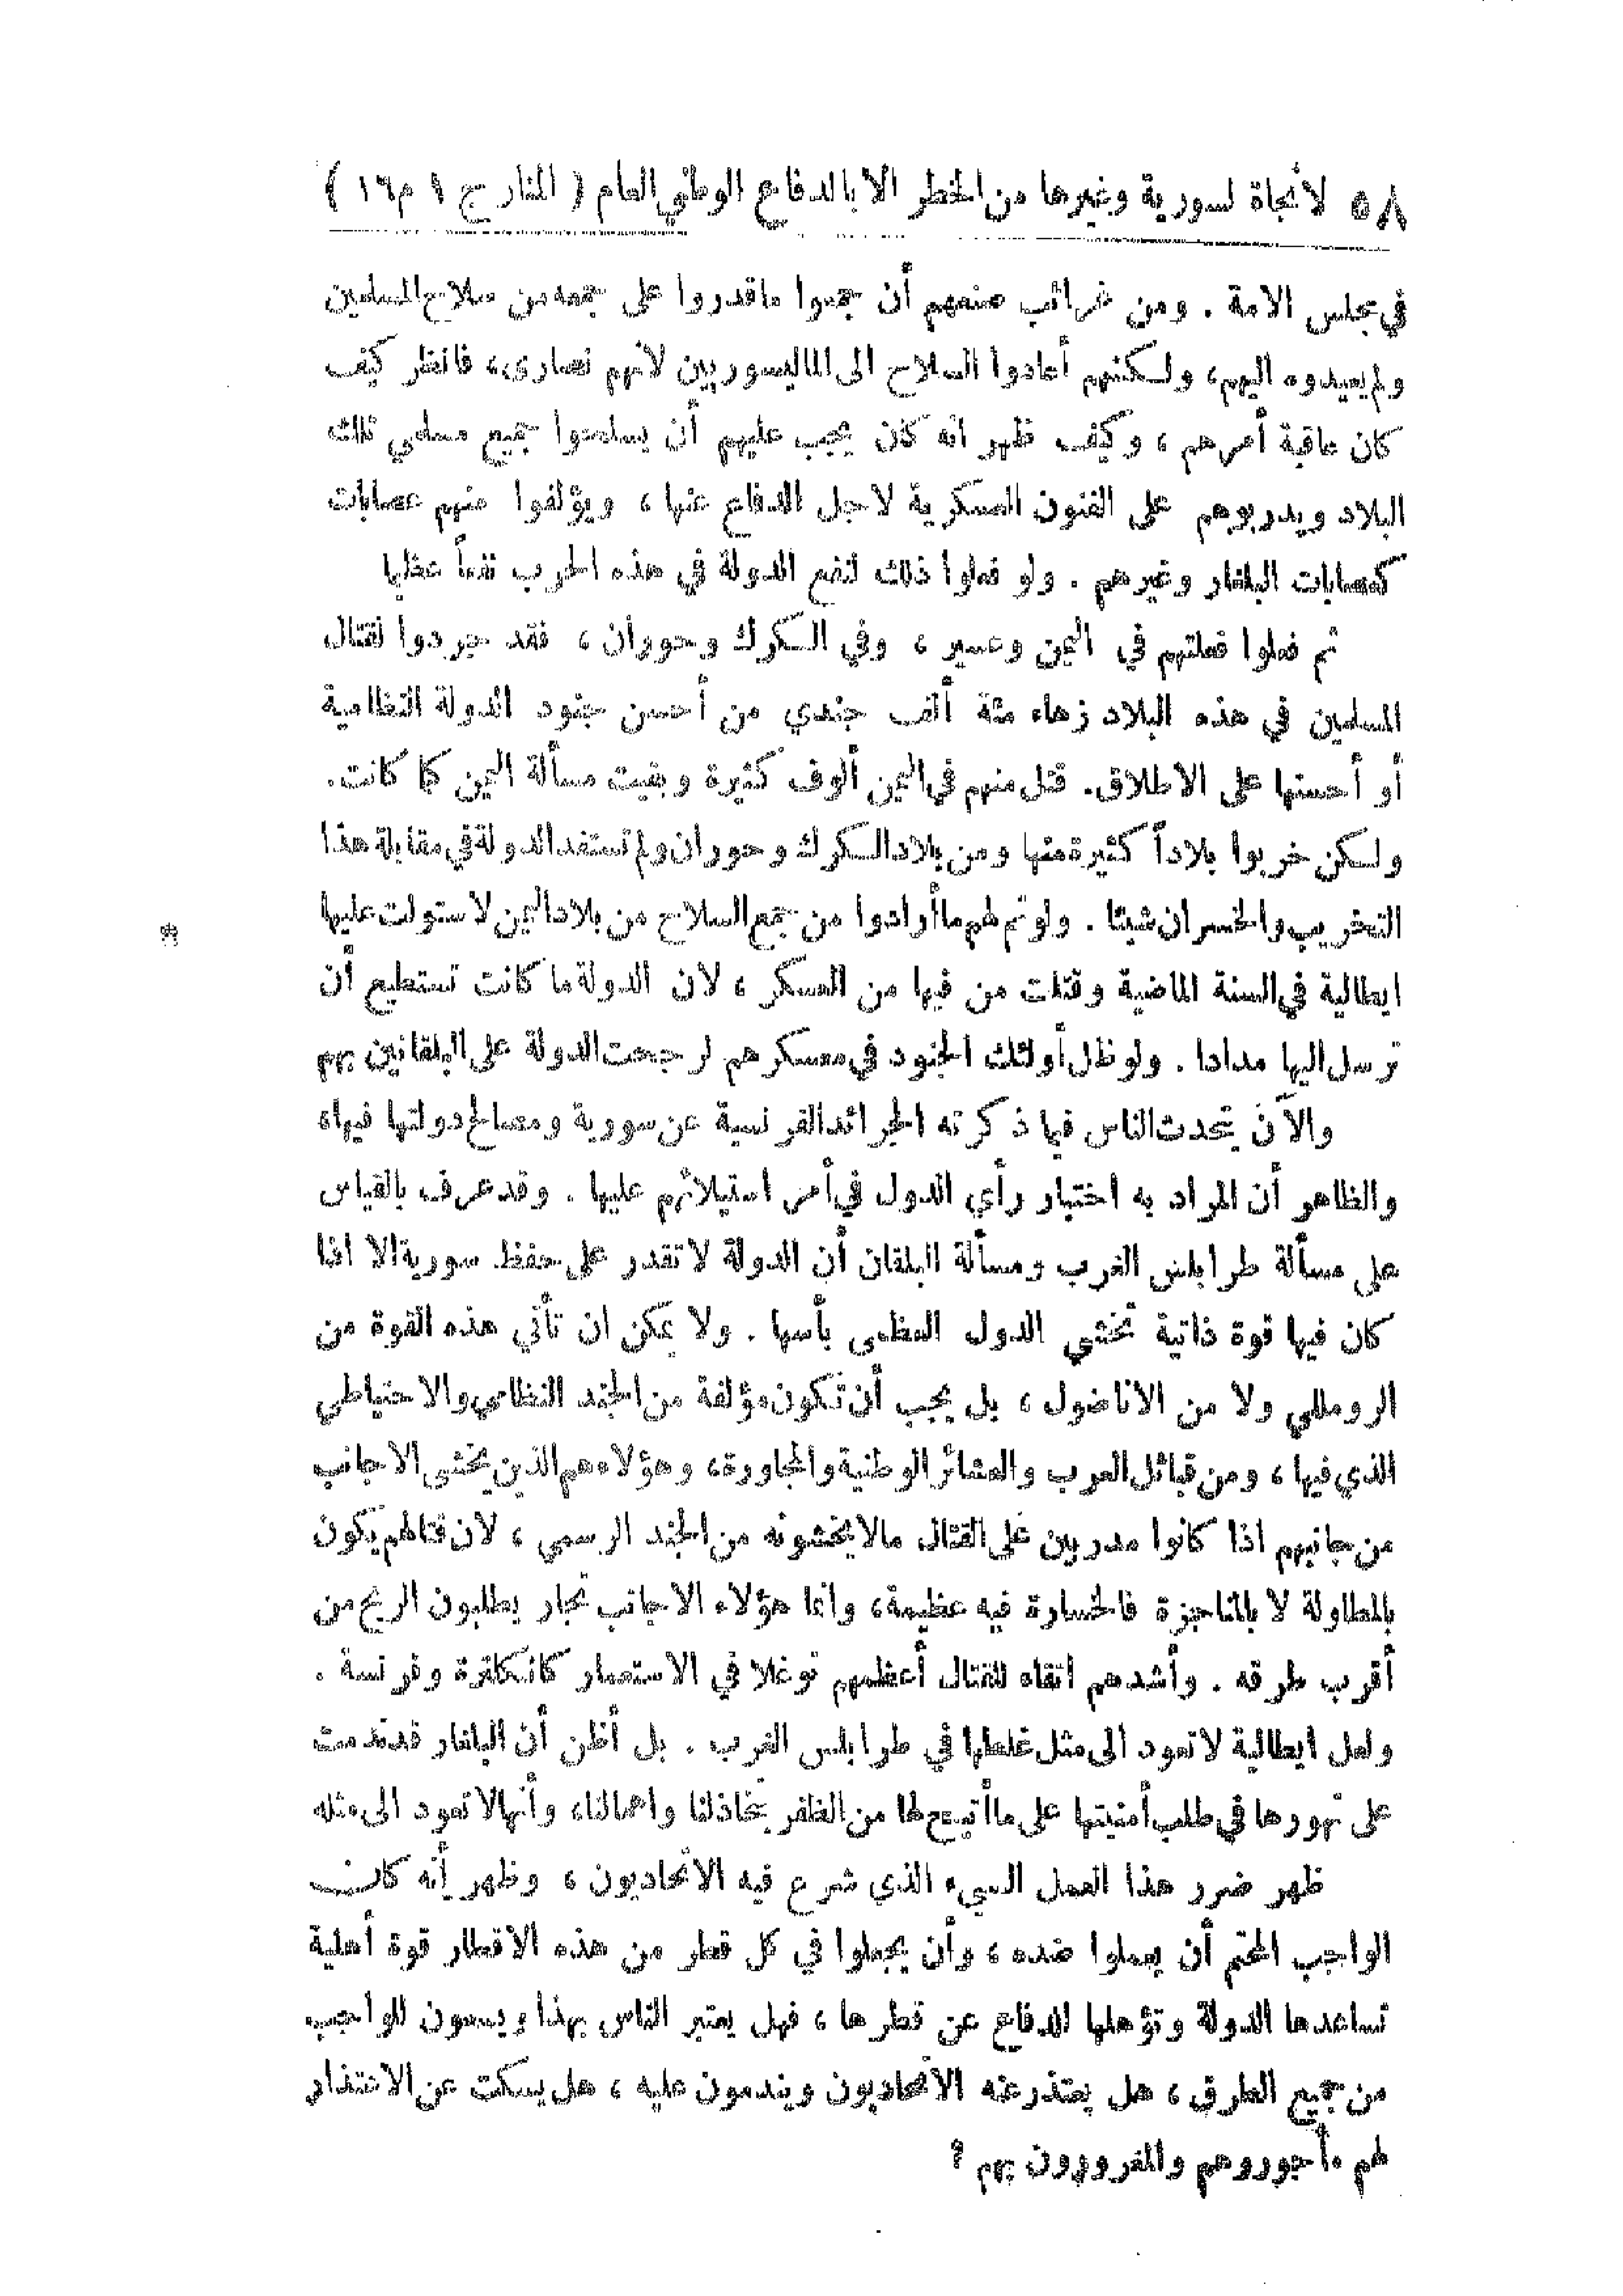 ٥٨ لا نجاة لسورية وغيرها من الخطر الا بالدفاع الوطني العام ( المنار ج ١ م١٦ )
في مجلس الامة . ومن غرائب صنعهم أن جمعوا ما قدروا على جمعه من سلاح المسلمين
ولم يعيدوه اليهم، ولكنهم أعادوا السلاح الى الماليسوريين لانهم نصارى، فانظر كيف
كان عاقبة أمرهم ، وكيف ظهر انه كان يجب عليهم أن يسلحوا جميع مسلمي تلك
البلاد ويدربوهم على الفنون العسكرية لاجل الدفاع عنها ، ويؤلفوا منهم عصابات
كعصابات البلغار وغيرهم . ولو فعلوا ذلك لنفع الدولة في هذه الحرب نفعاً عظيما
ثم فعلوا فعلتهم في اليمن وعسير ، وفي الكرك وحوران ، فقد جردوا لقتال
المسلمين في هذه البلاد زهاء مئة ألف جندي من أحسن جنود الدولة النظامية
أو أحسنها على الاطلاق. قتل منهم في اليمن ألوف كثيرة وبقيت مسألة اليمن كما كانت.
ولكن خربوا بلاداً كثيرة منها ومن بلاد الكرك وحوران ولم تستفد الدولة في مقابلة هذا
التخريب والخسران شيئا . ولو تم لهم ما أرادوا من جمع السلاح من بلاد اليمن لاستولت عليها
ايطالية في السنة الماضية وقتلت من فيها من العسكر ، لان الدولة ما كانت تستطيع أن
ترسل اليها مدادا . ولو ظل أولئك الجنود في معسكرهم لرجحت الدولة على البلقانيين بهم
والآن يتحدث الناس فيما ذكرته الجرائد الفرنسية عن سورية ومصالح دولتها فيها،
والظاهر أن المراد به اختبار رأي الدول في أمر استيلائهم عليها . وقد عرف بالقياس
على مسألة طرابلس الغرب ومسألة البلقان أن الدولة لا تقدر على حفظ سورية الا اذا
كان فيها قوة ذاتية تخشى الدول العظمى بأسها . ولا يمكن ان تأتي هذه القوة من
الروملي ولا من الاناضول ، بل يجب أن تكون مؤلفة من الجند النظامي والاحتياطي
الذي فيها ، ومن قبائل العرب والعشائر الوطنية والمجاورة، وهؤلاء هم الذين يخشى الاجانب
من جانبهم اذا كانوا مدربين على القتال ما لا يخشونه من الجند الرسمي ، لان قتالهم يكون
بالمطاولة لا بالمناجزة فالخسارة فيه عظيمة، وانما هؤلاء الاجانب تجار يطلبون الربح من
أقرب طرقه . وأشدهم اتقاء للقتال أعظمهم توغلا في الاستعمار كانكلترة وفرنسة .
ولعل ايطالية لا تعود الى مثل غلطها في طرابلس الغرب . بل أظن أن البلغار قد ندمت
على تهورها في طلب أمنيتها على ما أتيح لها من الظفر بتخاذلنا واهمالنا، وأنها لا تعود الى مثله
ظهر ضرر هذا العمل السيء الذي شرع فيه الاتحاديون ، وظهر أنه كان
الواجب المحتم أن يعملوا ضده ، وأن يجعلوا في كل قطر من هذه الاقطار قوة أهلية
تساعدها الدولة وتؤهلها للدفاع عن قطرها ، فهل يعتبر الناس بهذا ويسعون للواجب
من جميع الطرق ، هل يعتذر عنه الاتحاديون ويندمون عليه ، هل يسكت عن الاعتذار
لهم مأجوروهم والمغرورون بهم ؟